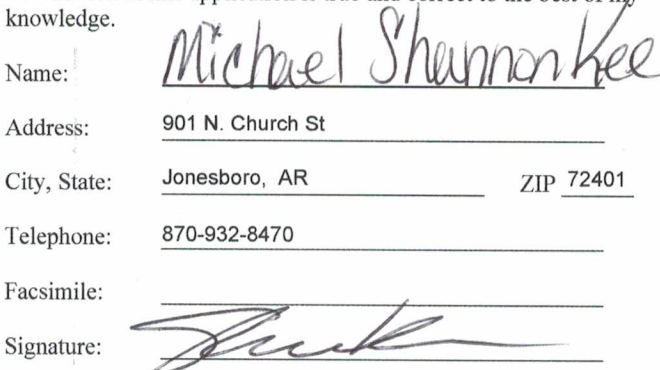 knowledge.
Name: Michael Shannon Kee
Address: 901 N. Church St
City, State: Jonesboro, AR ZIP 72401
Telephone: 870-932-8470
Facsimile:
Signature: